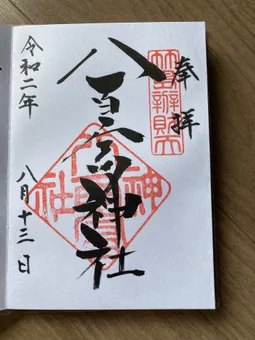 奉拝
八百富神社
令和二年
八月十三日
辨財天
神社